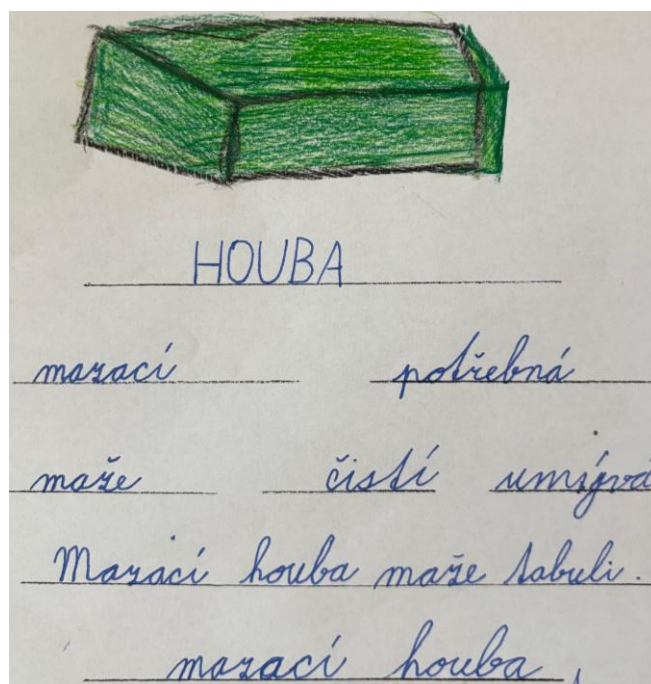 HOUBA
mazací potřebná
maže čistí umývá
Mazací houba maže tabuli.
mazací houba